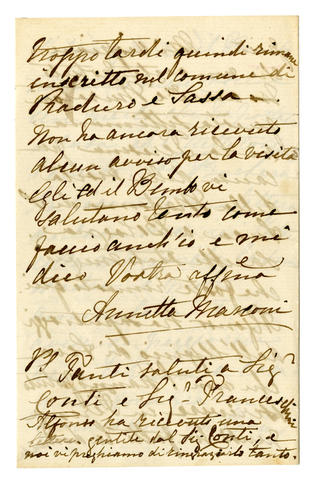 troppo tardi quindi rimane
inscritto nel comune di
Praduro e Sasso.
Non ha ancora ricevuto
alcun avviso per la visita
Egli ed il Bimbo vi
salutano tanto come
faccio anch'io e mi
dico Vostra affma
Annetta Marconi
PS Tanti saluti a Sigr
Conti e Sigra Franceschini
Alfonso ha ricevuto una
gentile dal Sigr Conti, e
noi vi preghiamo di ringraziarlo tanto.